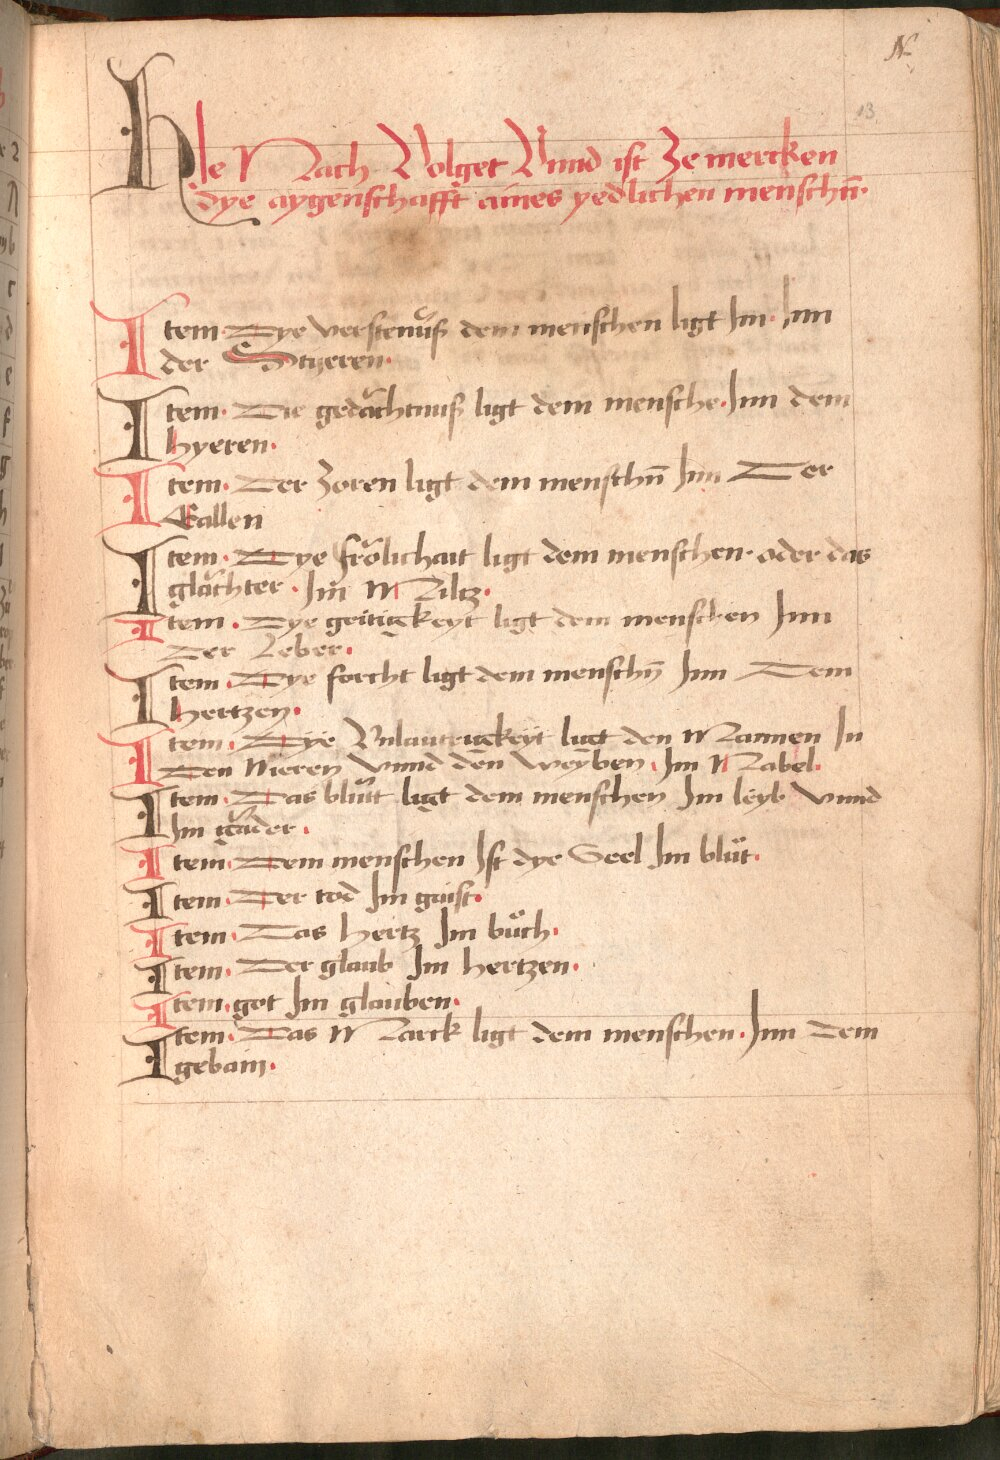 N
13
HIe Nach Volget Vnnd ist Ze mercken
dye aygenschafft aines yedlichen menschn̄.
Item. Dye verstenǔß dem menschen ligt Im. Inn
der Styeren.
Item. Die gedächtnuß ligt dem mensche. Inn dem
hyeren.
Item. Der Zoren ligt dem menschn̄ Inn Der
Gallen
Item. Dye frölichait ligt dem menschen. oder das
glächter. Im Miltz.
Item. Dye geitigkeyt ligt dem menschen Inn
Der Leber.
Item. Dye forcht ligt dem menschn̄ Inn Dem
hertzen.
Item. Dye Vnlautrigkeyt ligt den Mannen In
Den Nieren vnnd den weyben. Im Nabel.
Item. Das blůtt ligt dem menschen Im leyb vnnd
Im gäder.
Item. Dem menschen Ist dye Seel Im blůt.
Item. Der tod Im gaist.
Item. Das hertz Im bůch.
Item. Der glaub Im hertzen.
Item. got Im glauben.
Item. Das Marck ligt dem menschen. Inn Dem
gebain.